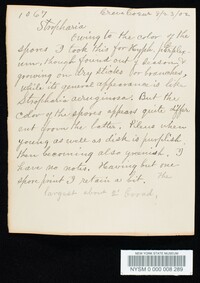 1067
Stropharia
Owing to the color of the
spores I took this for Hyph.
though found out of season &
growing on dry sticks or branches,
while its general appearance is like
Stropharia aeruginosa. But the
color of the spores appears quite differ
ent from the latter. Pileus when
young as well as disk is purplish
then becoming also greenish. I
have no notes. Having but one
spore print I retain a bit. The
largest about 2" broad.
NEW YORK STATE MUSEUM
NYSM 0 000 008 289